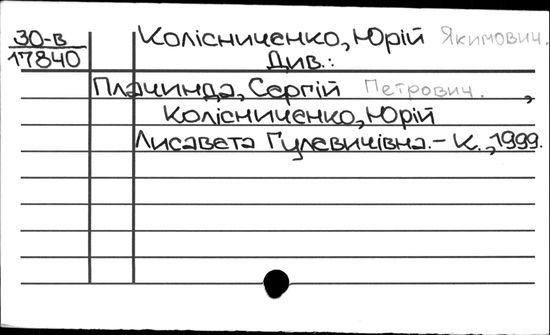 30-в Колісниченко, Юрій Якимович.
17840 Див.:
Плачинда, Сергій Петрович. ,
Колісниченко, Юрій
Лисавета Гулевичівна. – К., 1999.